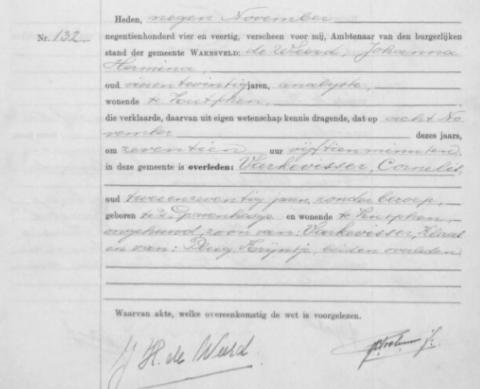 Heden, negen November
Nr. 132
negentienhonderd vier en veertig, verscheen voor mij, Ambtenaar van den burgerlijken
stand der gemeente WARNSVELD: de Weerd, Johanna
Hermina,
oud eenentwintig jaren, analyste,
wonende te Zutphen,
die verklaarde, daarvan uit eigen wetenschap kennis dragende, dat op acht No
vember dezes jaars,
om zeventien uur vijftien minuten,
in deze gemeente is overleden: Vlerkevisser, Cornelis,
oud tweeenzeventig jaar, zonder beroep,
geboren te 's Gravenhage en wonende te Zutphen,
ongehuwd, zoon van: Vlerkevisser, Klaas
en van: Krijntje, beiden overleden.
Waarvan akte, welke overeenkomstig de wet is voorgelezen.
J H. de Weerd.